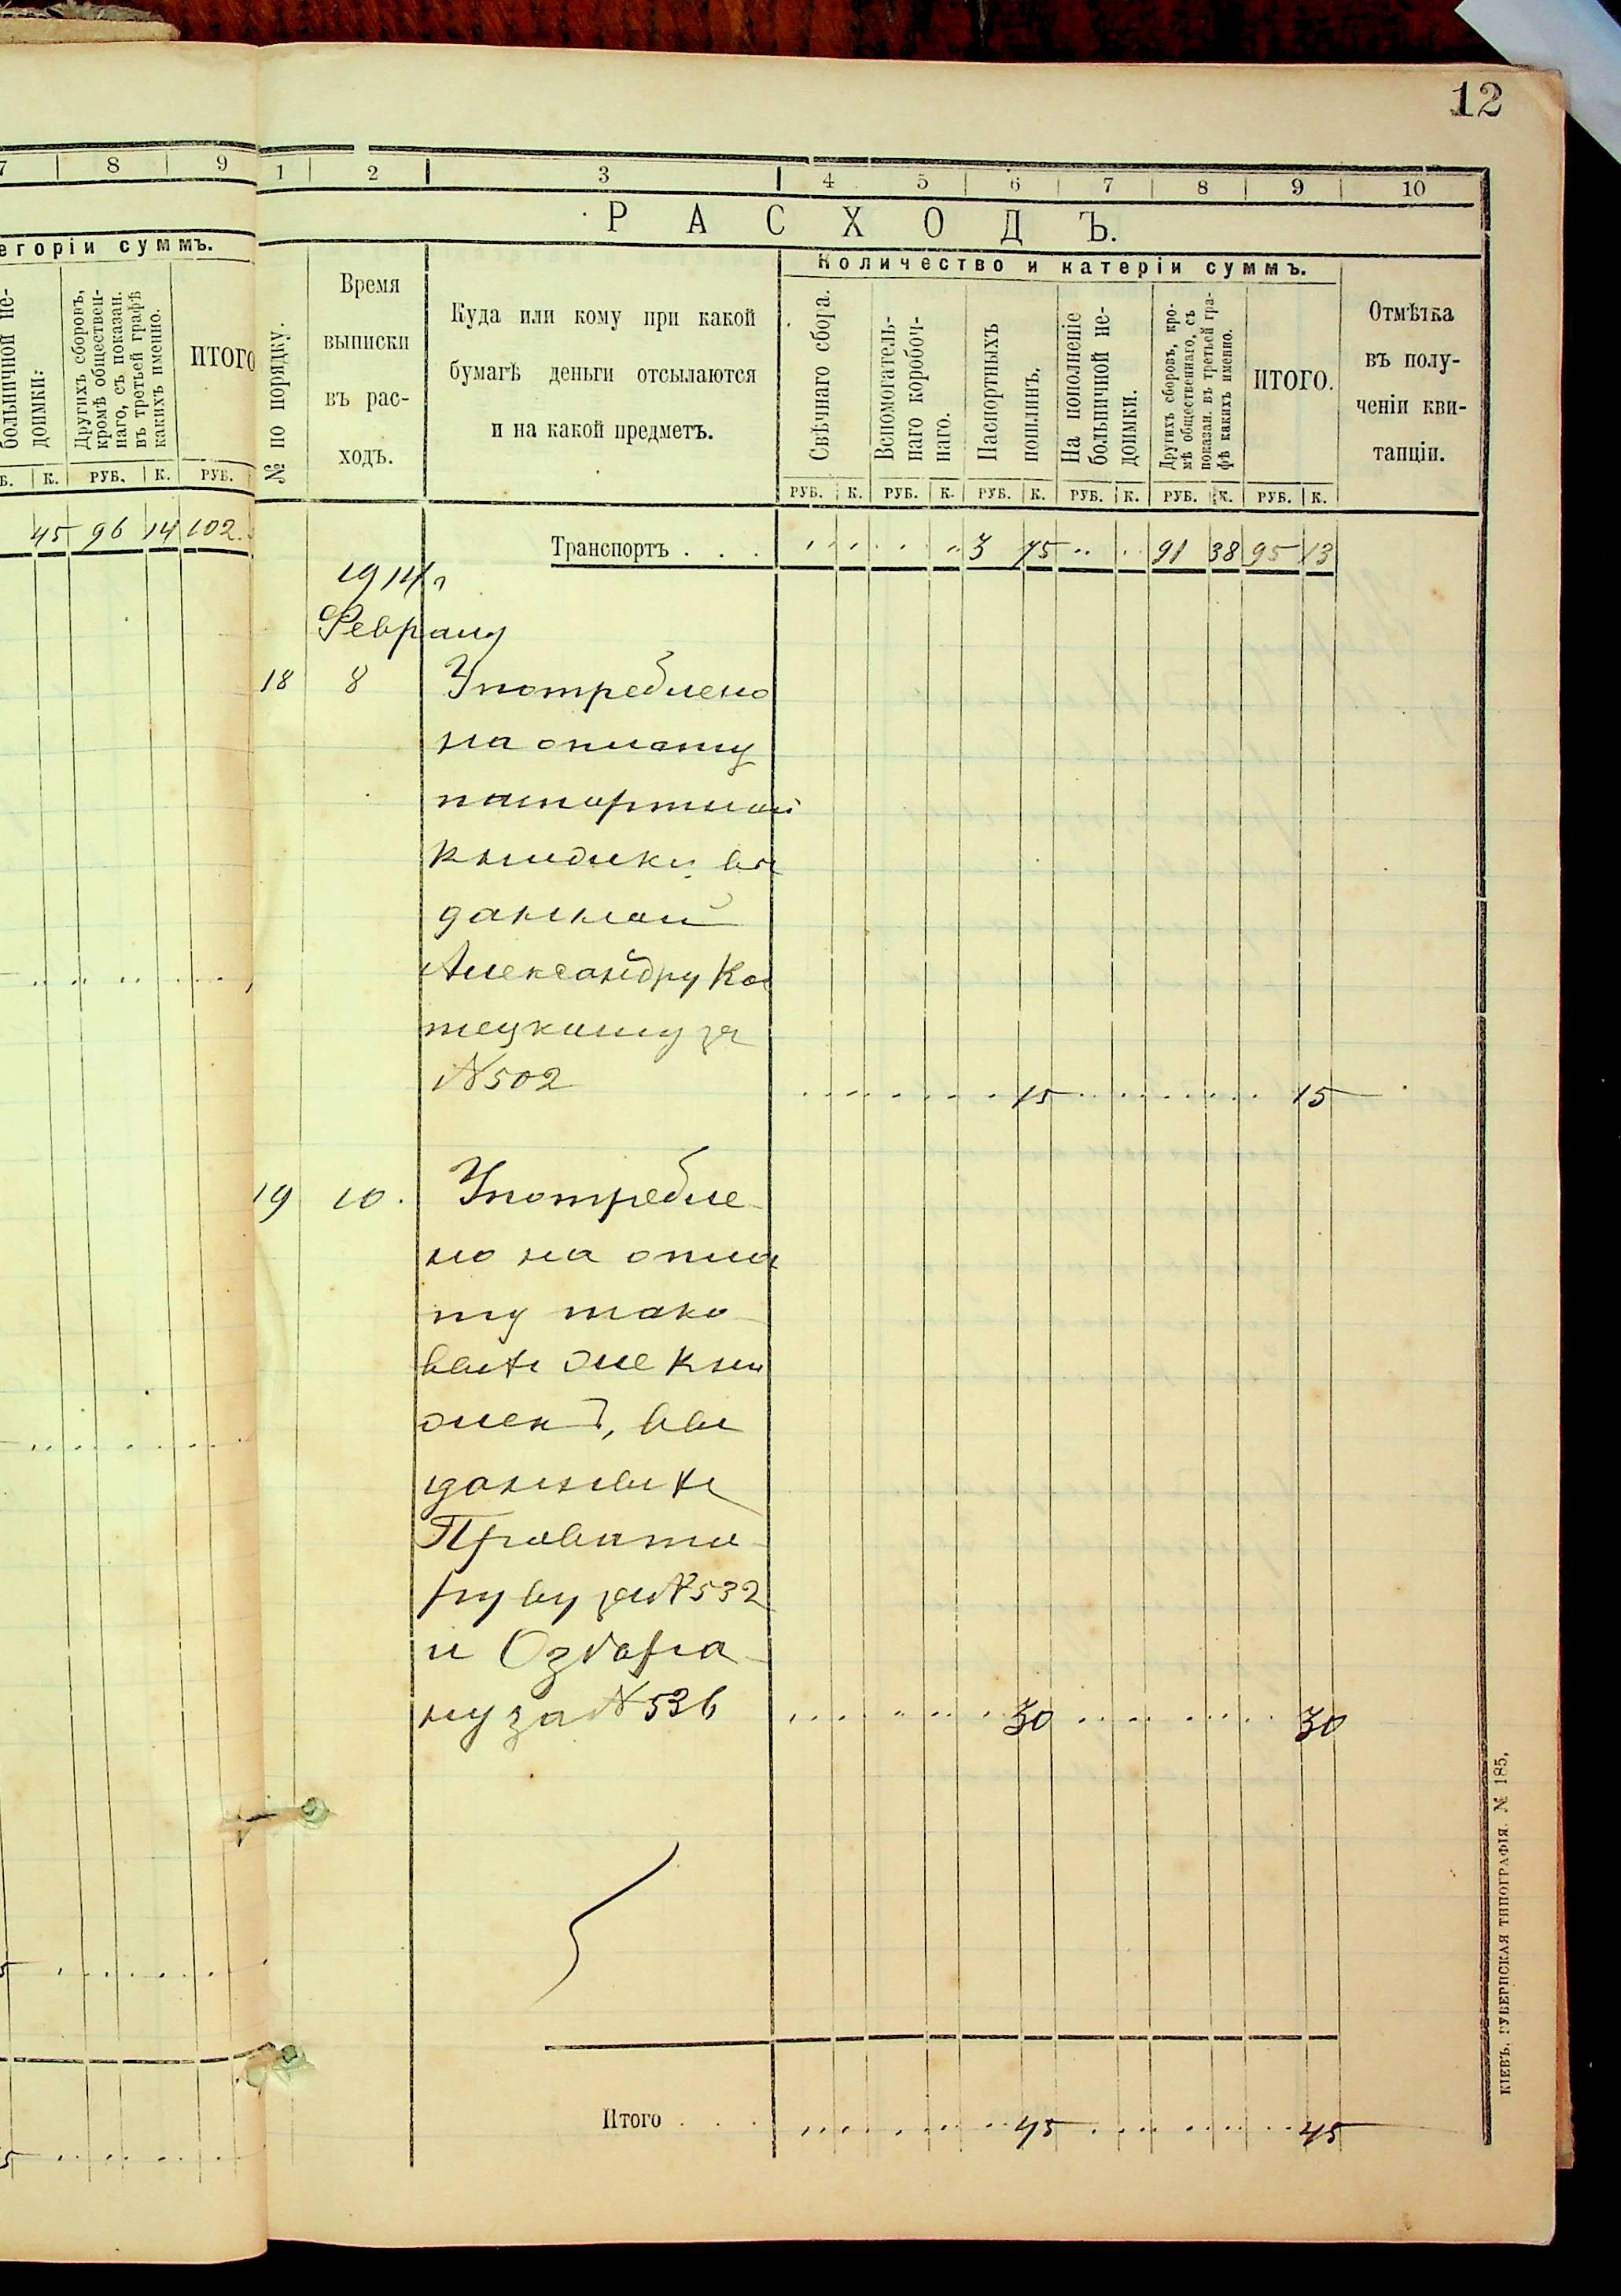 12
7 8 9
егоріи суммъ.
больничной не-
доимки:
Другихъ сборовъ,
кромѣ обществен-
наго, съ показан.
въ третьей графѣ
какихъ именно.
ИТОГО
Б. К. РУБ. К. РУБ.
45 96 14 102
1 2 3 4 5 6 7 8 9 10
РАСХОДЪ.
№ по порядку.
Время
выписки
въ рас-
ходъ.
Куда или кому при какой
бумагѣ деньги отсылаются
и на какой предметъ.
Количество и катеріи суммъ.
Свѣчнаго сбора.
Вспомогатель-
наго коробоч-
наго.
Паспортныхъ
пошлинъ.
На пополненіе
больничной не-
доимки.
Другихъ сборовъ, кро-
мѣ общественнаго, съ
показан. въ третьей гра-
фѣ какихъ именно.
ИТОГО.
Отмѣтка
въ полу-
ченіи кви-
танціи.
РУБ. К. РУБ. К. РУБ. К. РУБ. К. РУБ. К. РУБ. К.
Транспортъ . . . 3 75 91 38 95 13
1914 г
Февраля
18 8 Употреблено
на оплату
паспортной
книжки, вы
данной
Александру Ко
тецкому за
N 502 15 15
19 10. Употребле-
но на опла
ту тако-
выхъ же кни
жекъ, вы
данныхъ
за N 532
и
ну за N 536 30 30
Итого . . . 45 45
КІЕВЪ. ГУБЕРНСКАЯ ТИПОГРАФІЯ. № 185,